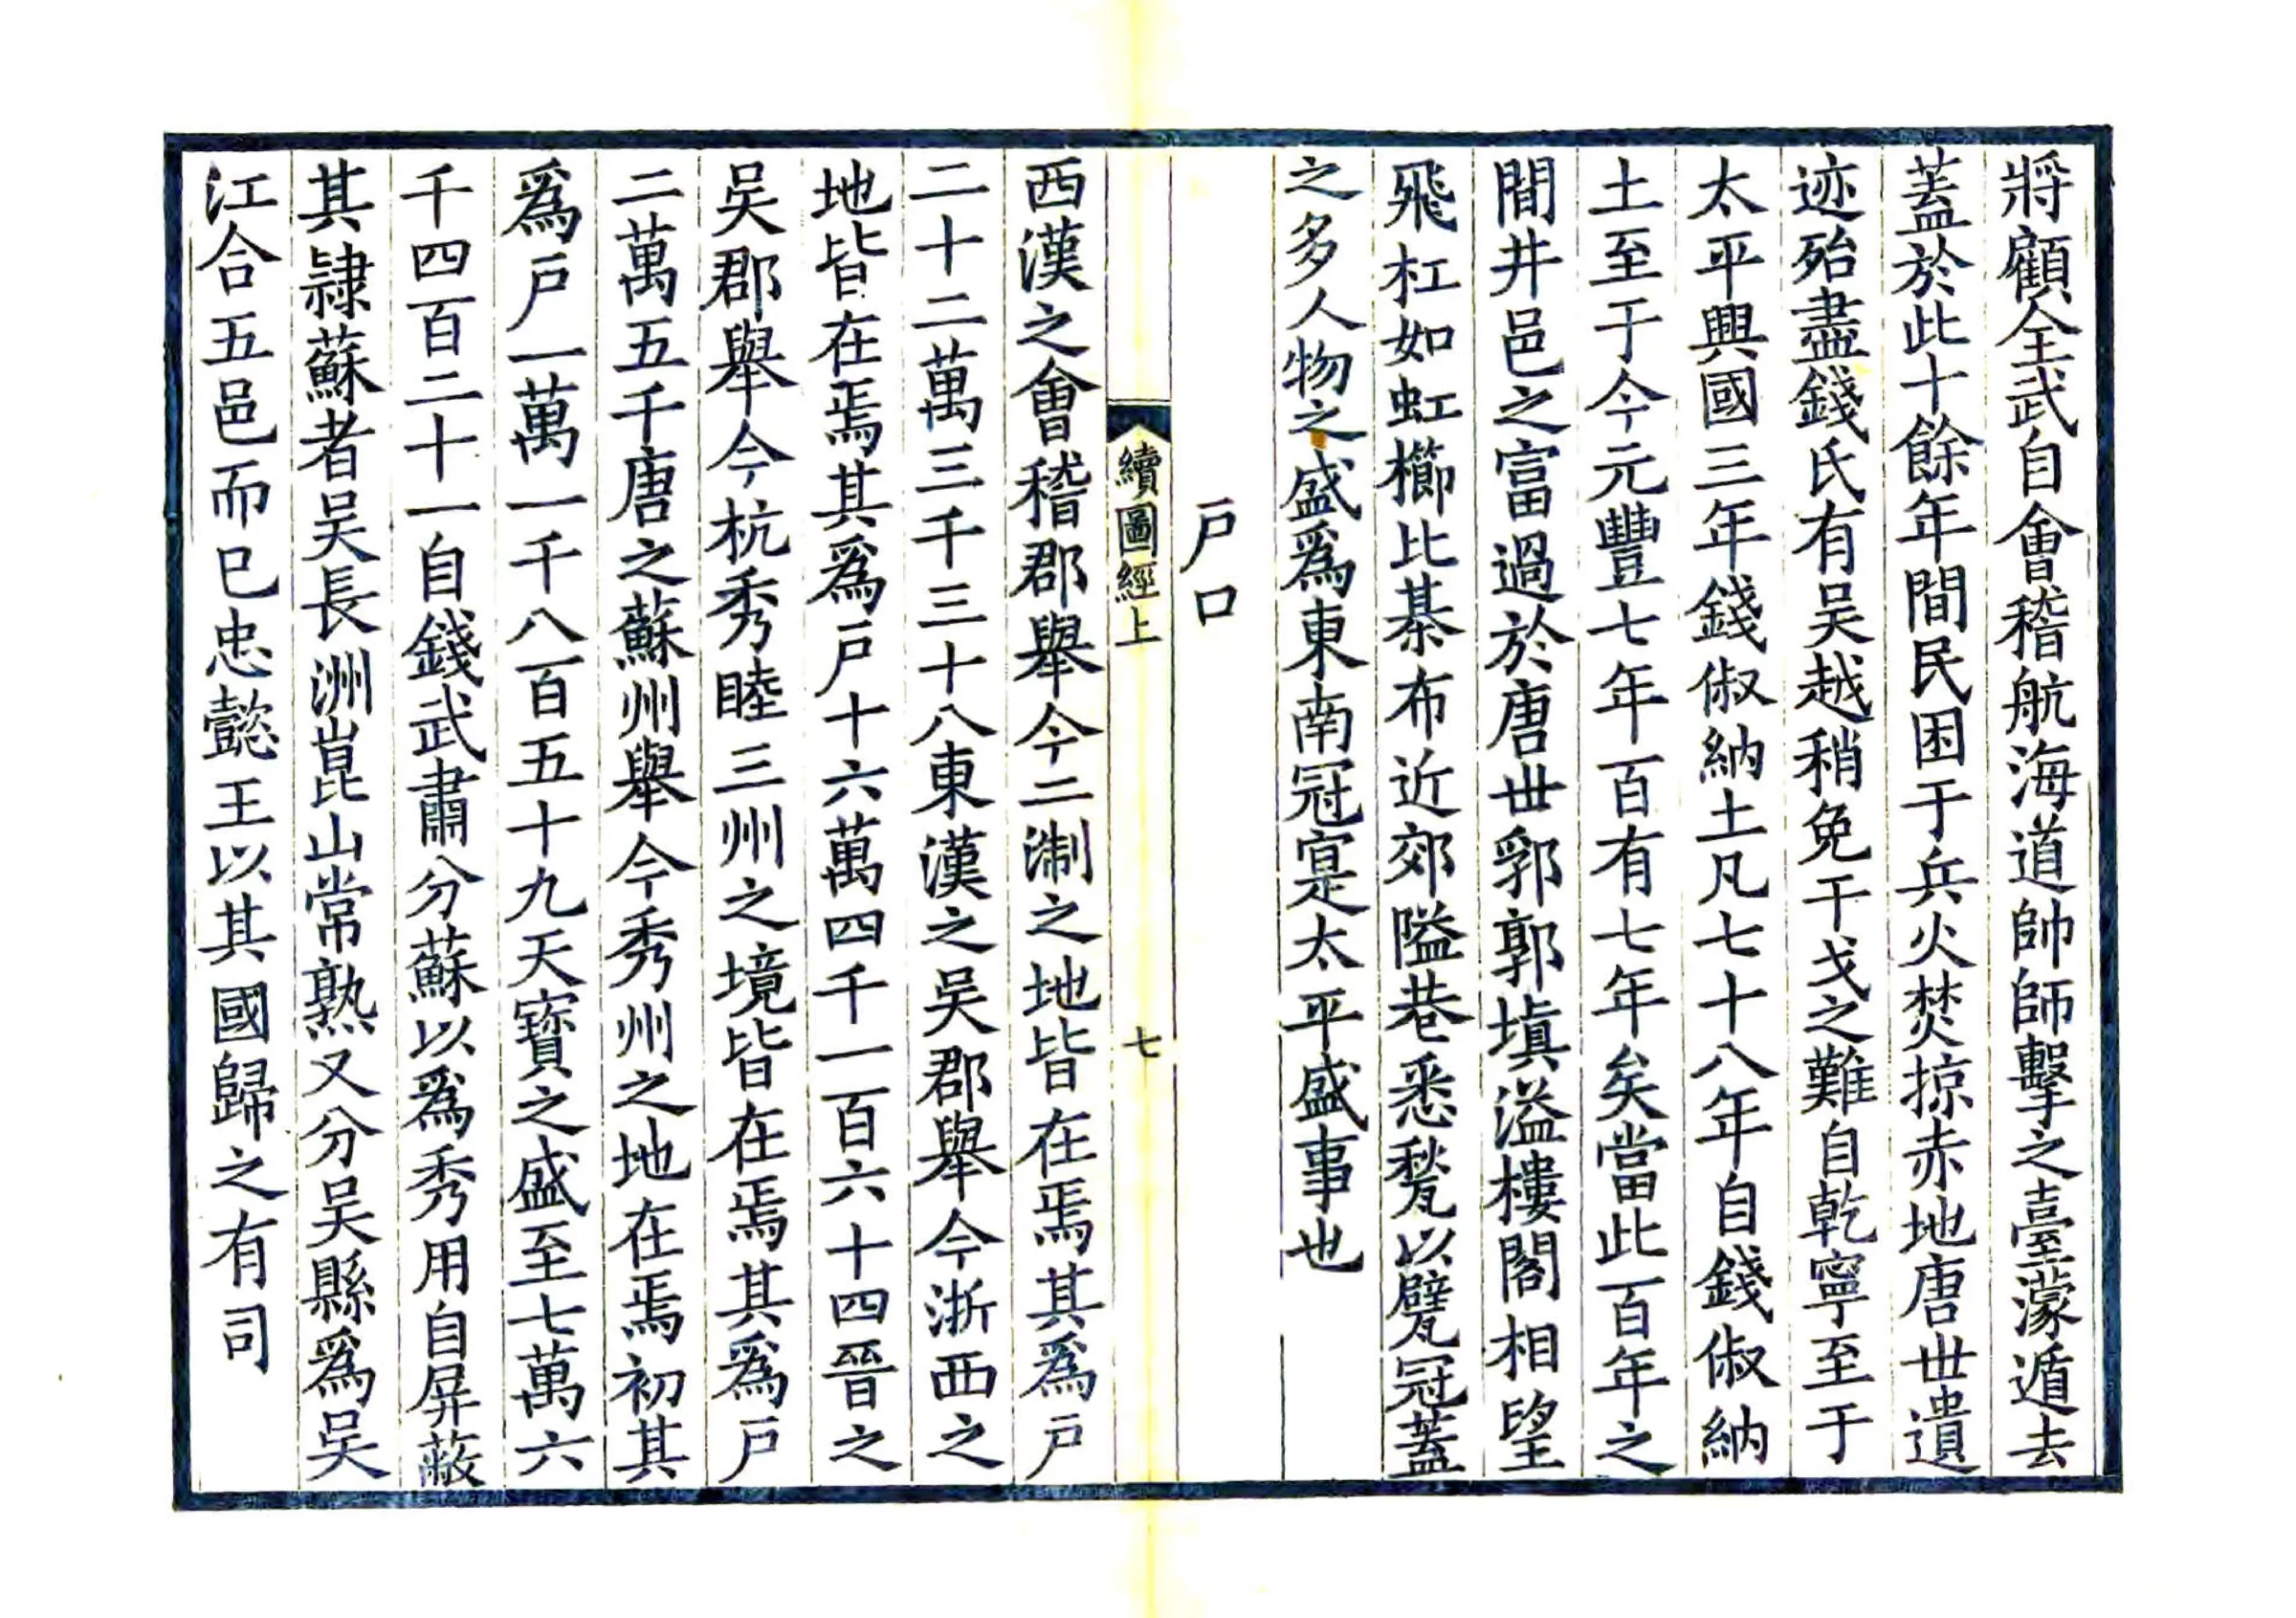 將顧全武自會稽航海道帥師擊之臺濛遁去
蓋於此十餘年間民困于兵火焚掠赤地唐世遺
迹殆盡錢氏有吴越稍免干戈之難自乾寧至于
太平興國三年錢俶納土凡七十八年自錢俶納
土至于今元豐七年百有七年矣當此百年之
間井邑之富過於唐世郛郭塡溢樓閣相望
飛杠如虹櫛比棊布近郊隘巷悉甃以甓冠蓋
之多人物之盛爲東南冠寔太平盛事也
戸口
續圖經上
七
西漢之會稽郡舉今二淛之地皆在焉其爲戸
二十二萬三千三十八東漢之吴郡舉今浙西之
地皆在焉其爲戸十六萬四千一百六十四晉之
吴郡舉今杭秀睦三州之境皆在焉其爲戸
二萬五千唐之蘇州舉今秀州之地在焉初其
爲戸一萬一千八百五十九天寳之盛至七萬六
千四百二十一自錢武肅分蘇以爲秀用自屏蔽
其隷蘇者吴長洲崑山常熟又分吴縣爲吴
江合五邑而已忠懿王以其國歸之有司